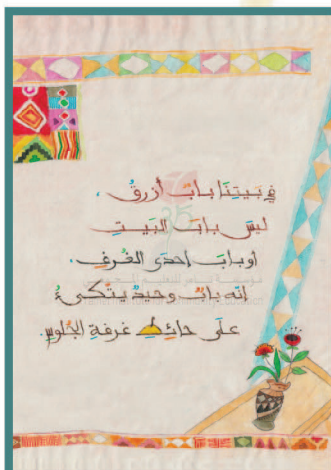 في بَيتِنَا بابٌ أزرقُ،
ليسَ بابَ البَيتِ
أو بابَ إحدَى الغُرفِ.
إنّه بابٌ وحيدٌ يتّكىءُ
على حائِطِ غرفةِ الجُلوسِ.